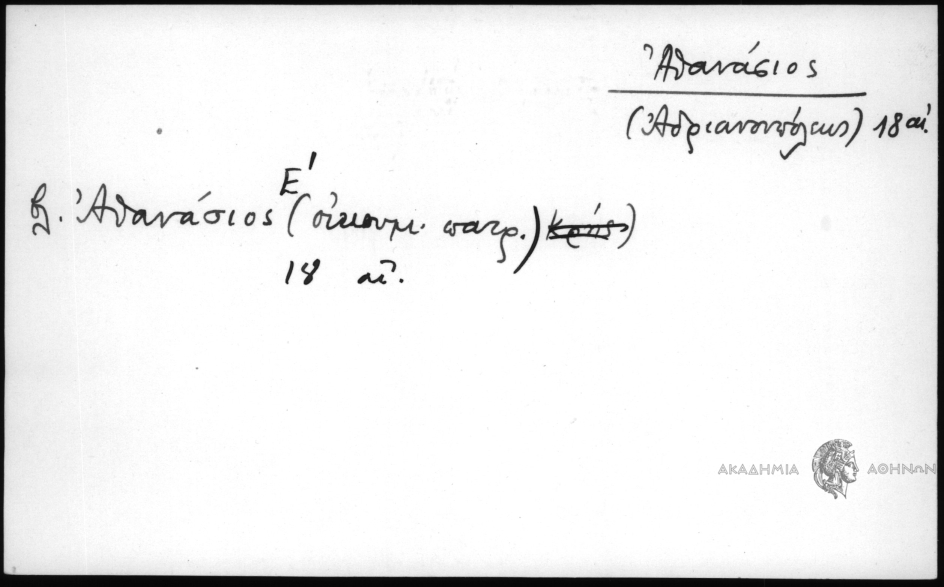 Ἀθανάσιος
(Ἀδριανουπόλεως) 18 αἰ.
Ε'
βλ. Ἀθανάσιος (οἰκουμ. πατρ.)
18 αἰ.
ΑΚΑΔΗΜΙΑ ΑΘΗΝΩΝ